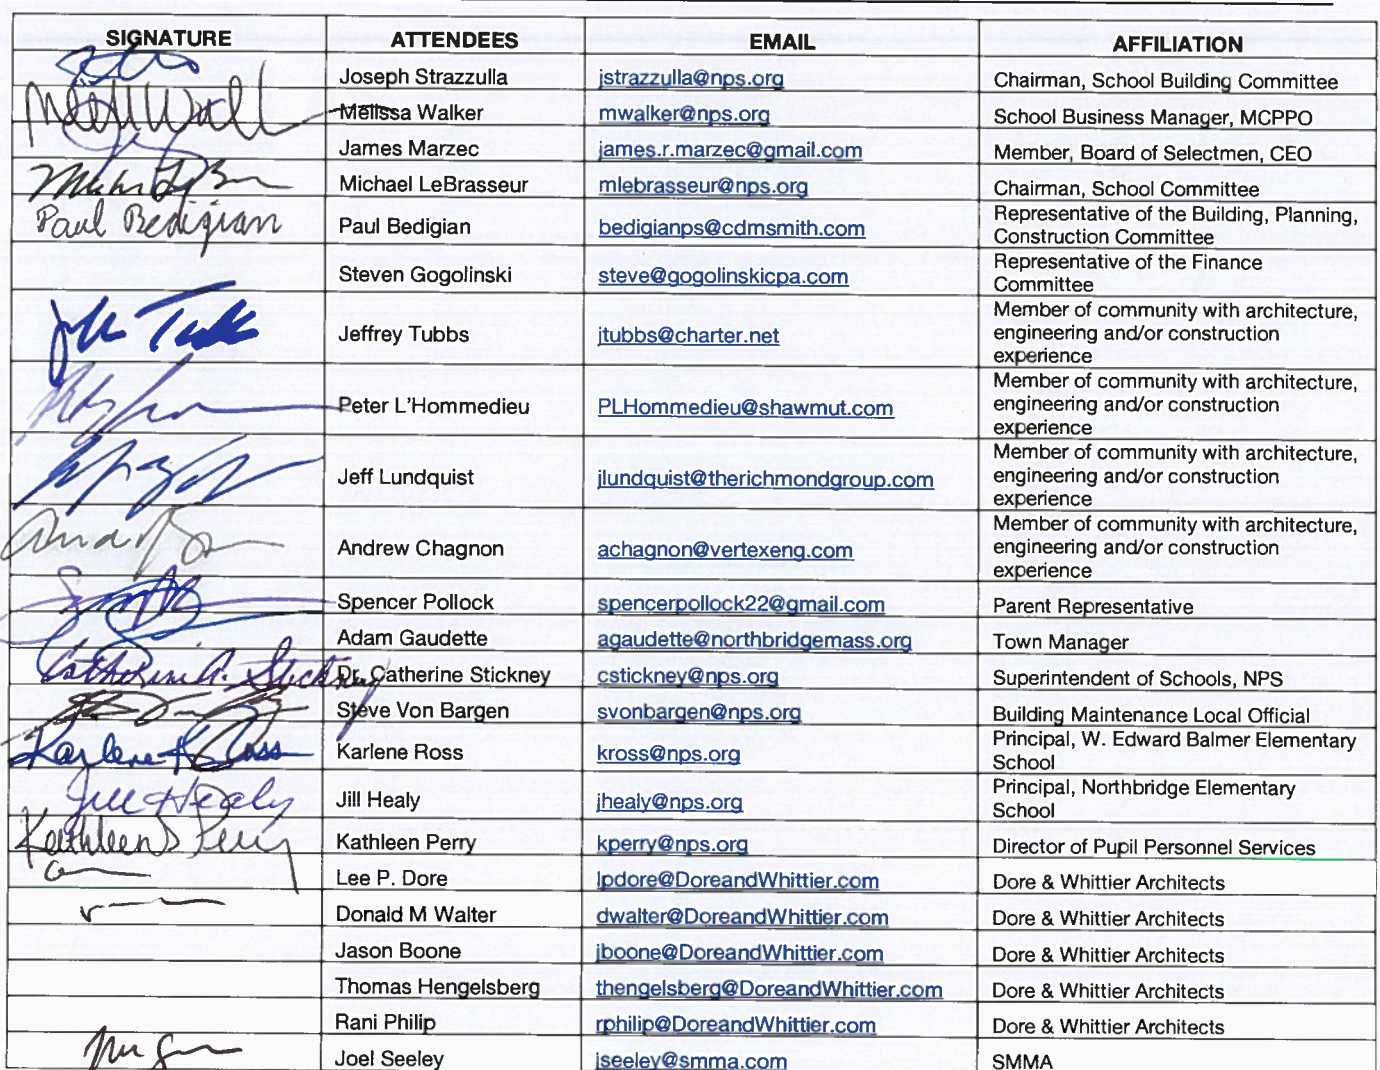 SIGNATURE ATTENDEES EMAIL AFFILIATION
Joseph Strazzulla jstrazzulla@nps.org Chairman, School Building Committee
Melissa Walker mwalker@nps.org School Business Manager, MCPPO
James Marzec james.r.marzec@gmail.com Member, Board of Selectmen, CEO
Michael LeBrasseur mlebrasseur@nps.org Chairman, School Committee
Paul Bedigian Paul Bedigian bedigianps@cdmsmith.com Representative of the Building, Planning,
Construction Committee
Steven Gogolinski steve@gogolinskicpa.com Representative of the Finance
Committee
Jeffrey Tubbs jtubbs@charter.net Member of community with architecture,
engineering and/or construction
experience
Peter L'Hommedieu PLHommedieu@shawmut.com Member of community with architecture,
engineering and/or construction
experience
Jeff Lundquist jlundquist@therichmondgroup.com Member of community with architecture,
engineering and/or construction
experience
Andrew Chagnon achagnon@vertexeng.com Member of community with architecture,
engineering and/or construction
experience
Spencer Pollock spencerpollock22@gmail.com Parent Representative
Adam Gaudette agaudette@northbridgemass.org Town Manager
Catherine A. Stickney Dr. Catherine Stickney cstickney@nps.org Superintendent of Schools, NPS
Steve Von Bargen svonbargen@nps.org Building Maintenance Local Official
Karlene K Ross Karlene Ross kross@nps.org Principal, W. Edward Balmer Elementary
School
Jill Healy Jill Healy jhealy@nps.org Principal, Northbridge Elementary
School
Kathleen Perry Kathleen Perry kperry@nps.org Director of Pupil Personnel Services
Lee P. Dore lpdore@DoreandWhittier.com Dore & Whittier Architects
Donald M Walter dwalter@DoreandWhittier.com Dore & Whittier Architects
Jason Boone jboone@DoreandWhittier.com Dore & Whittier Architects
Thomas Hengelsberg thengelsberg@DoreandWhittier.com Dore & Whittier Architects
Rani Philip rphilip@DoreandWhittier.com Dore & Whittier Architects
Joel Seeley jseeley@smma.com SMMA